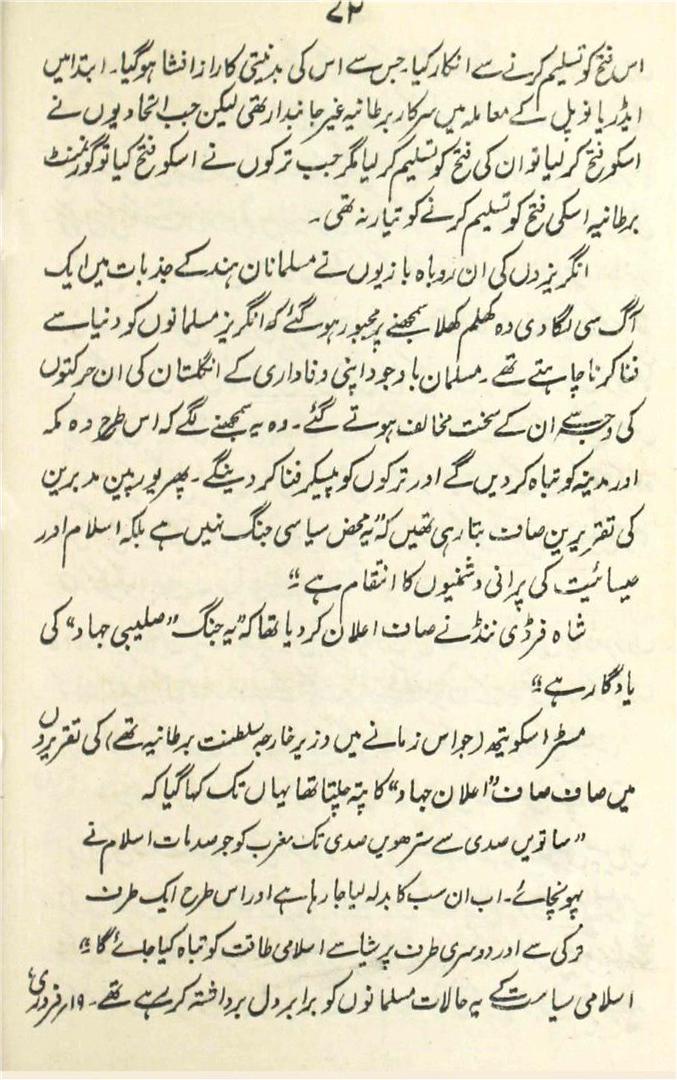 ۷۲
اس فتح کو تسلیم کرنے سے انکار کیا۔ جس سے اس کی بدنیتی کا راز افشا ہوگیا۔ ابتدا میں
ایڈریا نوپل کے معاملہ میں سرکار برطانیہ غیر جانبدار تھی لیکن جب اتحادیوں نے
اسکو فتح کر لیا تو ان کی فتح کو تسلیم کر لیا مگر جب ترکوں نے اسکو فتح کیا تو گورنمنٹ
برطانیہ اسکی فتح کو تسلیم کرنے کو تیار نہ تھی۔
انگریزوں کی ان روباہ بازیوں نے مسلمانان ہند کے جذبات میں ایک
آگ سی لگا دی وہ کھلم کھلا سمجھنے پر مجبور ہو گئے کہ انگریز مسلمانوں کو دنیا سے
فنا کرنا چاہتے تھے۔ مسلمان باوجود اپنی وفاداری کے انگلستان کی ان حرکتوں
کی وجہ سے ان کے سخت مخالف ہوتے گئے۔ وہ یہ سمجھنے لگے کہ اس طرح وہ مکہ
اور مدینہ کو تباہ کر دیں گے اور ترکوں کو پیسکر فنا کر دینگے۔ پھر یورپین مدبرین
کی تقریریں صاف بتا رہی تھیں کہ "یہ محض سیاسی جنگ نہیں ہے بلکہ اسلام اور
عیسائیت کی پرانی دشمنیوں کا انتقام ہے"
شاہ فرڈی ننڈ نے صاف اعلان کر دیا تھا کہ "یہ جنگ "صلیبی جہاد" کی
یادگار ہے"
مسٹر اسکویتھ (جو اس زمانے میں وزیر خارجہ سلطنت برطانیہ تھے) کی تقریروں
میں صاف صاف "اعلان جہاد" کا پتہ چلتا تھا یہاں تک کہا گیا کہ
"ساتویں صدی سے سترھویں صدی تک مغرب کو جو صدمات اسلام نے
پہونچائے۔ اب ان سب کا بدلہ لیا جا رہا ہے اور اس طرح ایک طرف
ترکی سے اور دوسری طرف پرشیا سے اسلامی طاقت کو تباہ کیا جائے گا"
اسلامی سیاست کے یہ حالات مسلمانوں کو برابر دل برداشتہ کر رہے تھے۔ ۱۹؍ فروری